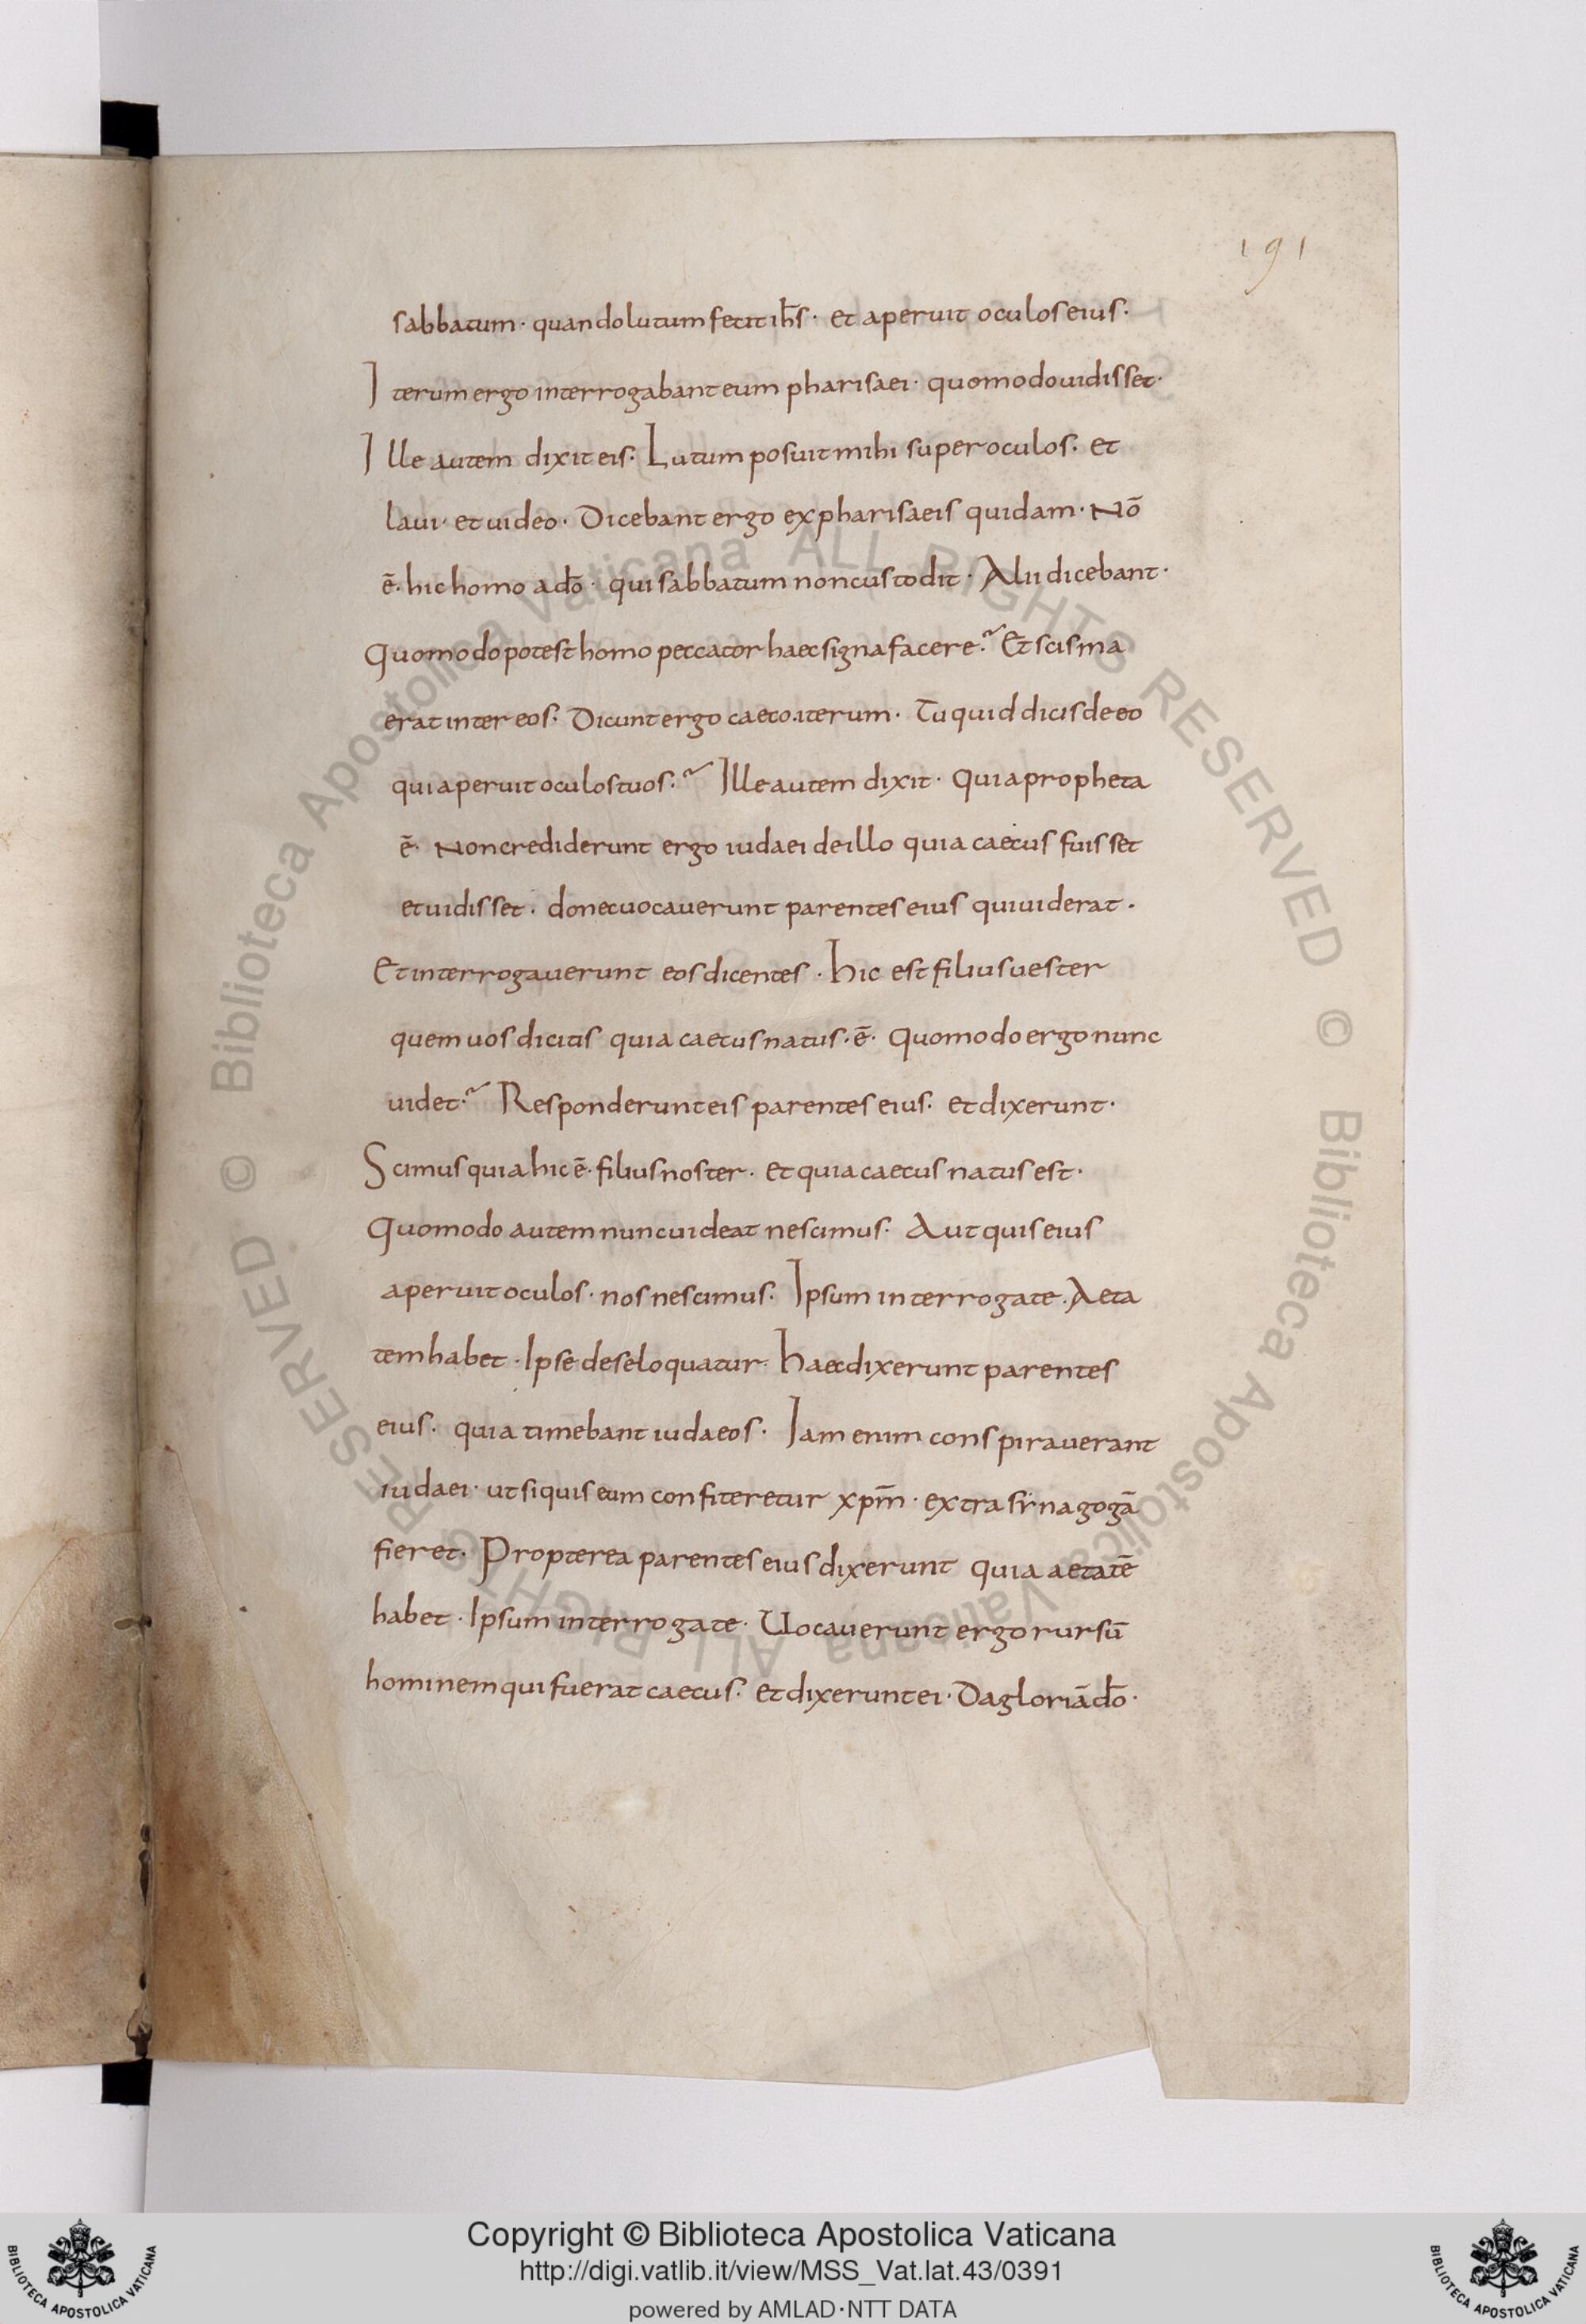 191
sabbatum · quando lutum fecit ih̄s · et aperuit oculos eius ·
Iterum ergo interrogabant eum pharisaei · quomodo uidisset ·
Ille autem dixit eis · Lutum posuit mihi super oculos · et
laui · et uideo · Dicebant ergo ex pharisaeis quidam · Nō
ē · hic homo a dō · qui sabbatum non custodit · Alii dicebant ·
Quomodo potest homo peccator haec signa facere ? Et scisma
erat inter eos · Dicunt ergo caeco iterum · Tu quid dicis de eo
qui aperuit oculos tuos ? Ille autem dixit · Quia propheta
ē · Non crediderunt ergo iudaei de illo quia caecus fuisset
et uidisset · donec uocauerunt parentes eius qui uiderat ·
Et interrogauerunt eos dicentes · Hic est filius uester
quem uos dicitis quia caecus natus · ē · Quomodo ergo nunc
uidet ? Responderunt eis parentes eius · et dixerunt ·
Scimus quia hic ē · filius noster · et quia caecus natus est ·
Quomodo autem nunc uideat nescimus · Aut quis eius
aperuit oculos · nos nescimus · Ipsum interrogate · Aeta
tem habet · Ipse de se loquatur · Haec dixerunt parentes
eius · quia timebant iudaeos · Iam enim conspirauerant
iudaei · ut si quis eum confiteretur xpm̄ · extra synagogā
fieret · Propterea parentes eius dixerunt quia aetatē
habet · Ipsum interrogate · Uocauerunt ergo rursū
hominem qui fuerat caecus · et dixerunt ei · Da gloriā dō ·
© Biblioteca Apostolica Vaticana ALL RIGHTS RESERVED
© Biblioteca Apostolica Vaticana ALL RIGHTS RESERVED
Copyright © Biblioteca Apostolica Vaticana
http://digi.vatlib.it/view/MSS_Vat.lat.43/0391
powered by AMLAD·NTT DATA
BIBLIOTECA APOSTOLICA VATICANA
BIBLIOTECA APOSTOLICA VATICANA